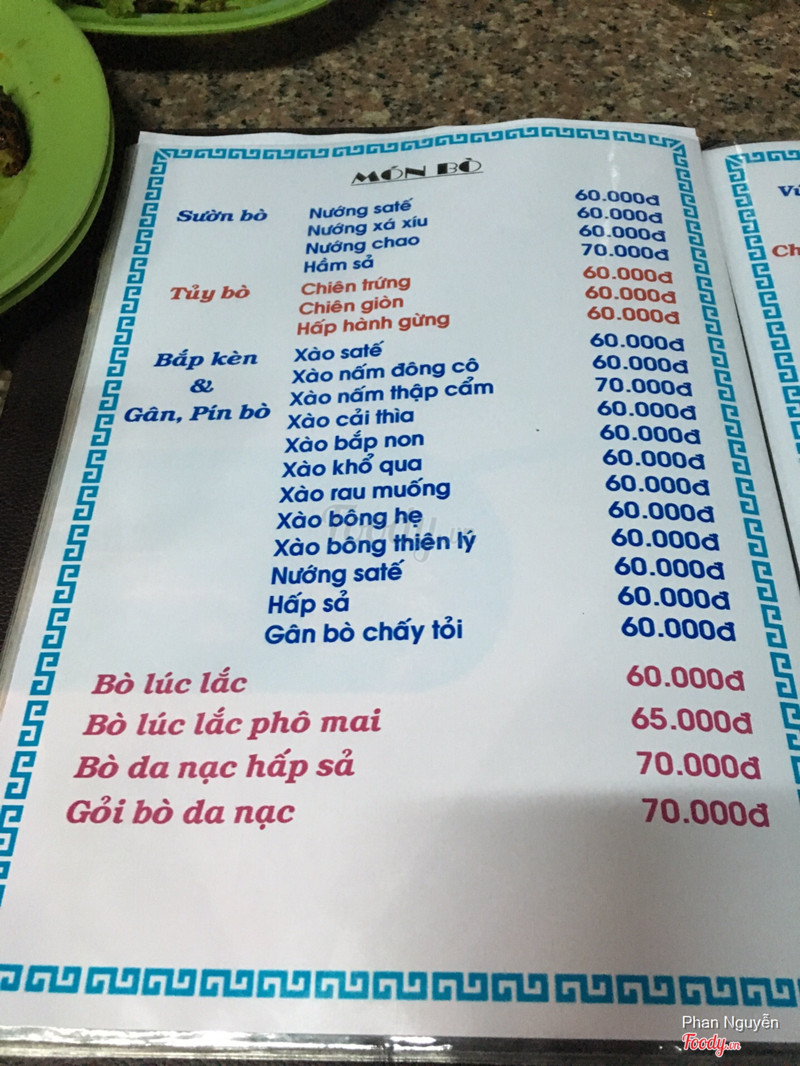 MÓN BÒ
Sườn bò Nướng satế 60.000đ
Nướng xá xíu 60.000đ
Nướng chao 60.000đ
Hầm sả 70.000đ
Tủy bò Chiên trứng 60.000đ
Chiên giòn 60.000đ
Hấp hành gừng 60.000đ
Bắp kèn & Gân, Pín bò Xào satế 60.000đ
Xào nấm đông cô 60.000đ
Xào nấm thập cẩm 70.000đ
Xào cải thìa 60.000đ
Xào bắp non 60.000đ
Xào khổ qua 60.000đ
Xào rau muống 60.000đ
Xào bông hẹ 60.000đ
Xào bông thiên lý 60.000đ
Nướng satế 60.000đ
Hấp sả 60.000đ
Gân bò chấy tỏi 60.000đ
Bò lúc lắc 60.000đ
Bò lúc lắc phô mai 65.000đ
Bò da nạc hấp sả 70.000đ
Gỏi bò da nạc 70.000đ
Foody.vn
Phan Nguyễn
Foody.vn